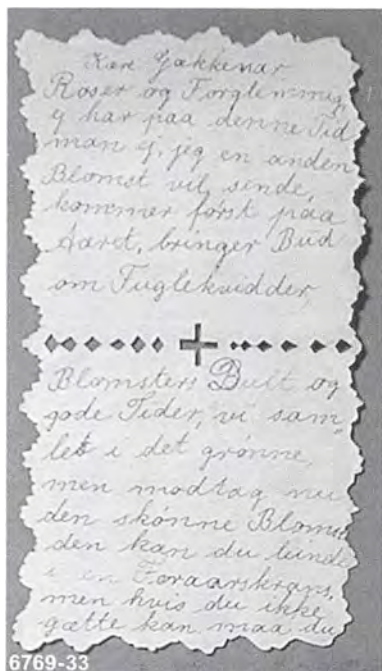 Kære Gækkenar
Roser og Forglemmig
ej har paa denne Tid
man ej, jeg en anden
Blomst vil sende,
kommer først paa
Aaret, bringer Bud
om Fuglekvidder,
Blomsters Duft og
gode Tider, vi sam„
let i det grønne,
men modtag nu
den skönne Blomst
den kan du binde
i en Foraarskrans,
men hvis du ikke
gætte kan maa du
6769-33